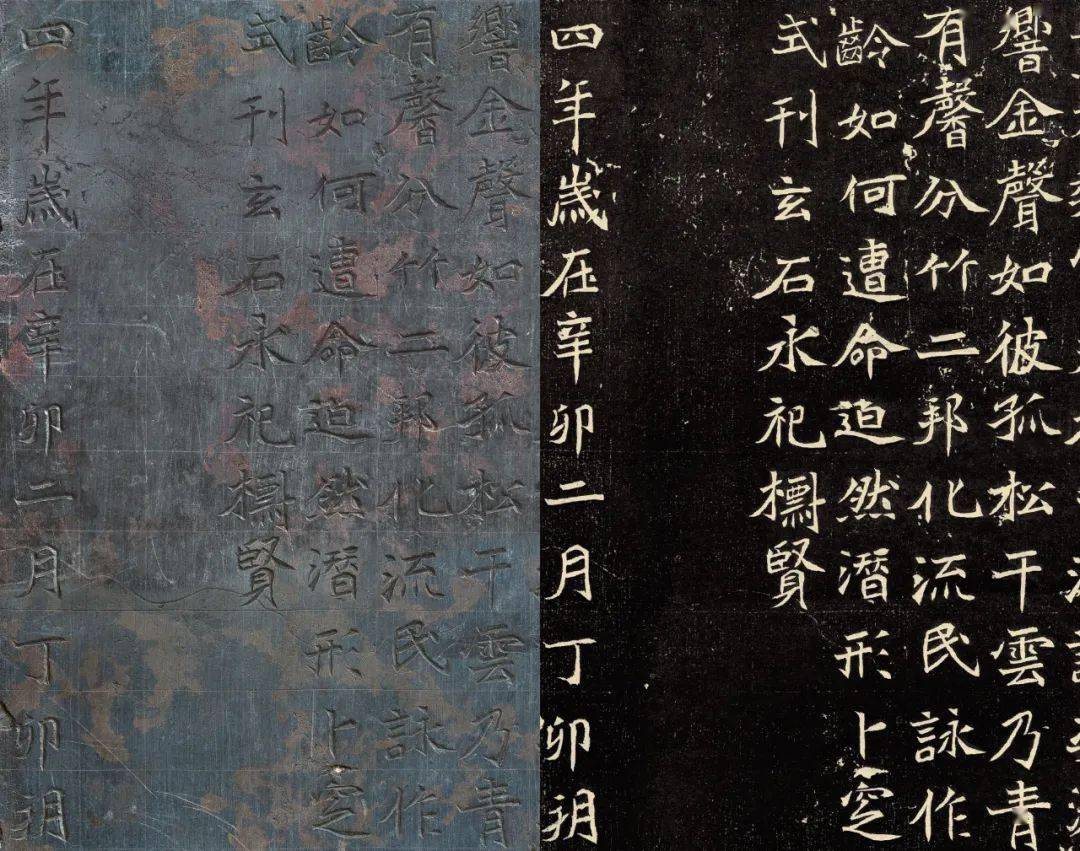 響金聲如彼孤松干雲乃青
有馨分竹二邦化流民詠作
齡如何遭命迫然潛形卜窆
式刊玄石永祀賢
四年歲在辛卯二月丁卯朔
響金聲如彼孤松干雲乃青
有馨分竹二邦化流民詠作
齡如何遭命迫然潛形卜窆
式刊玄石永祀賢
四年歲在辛卯二月丁卯朔